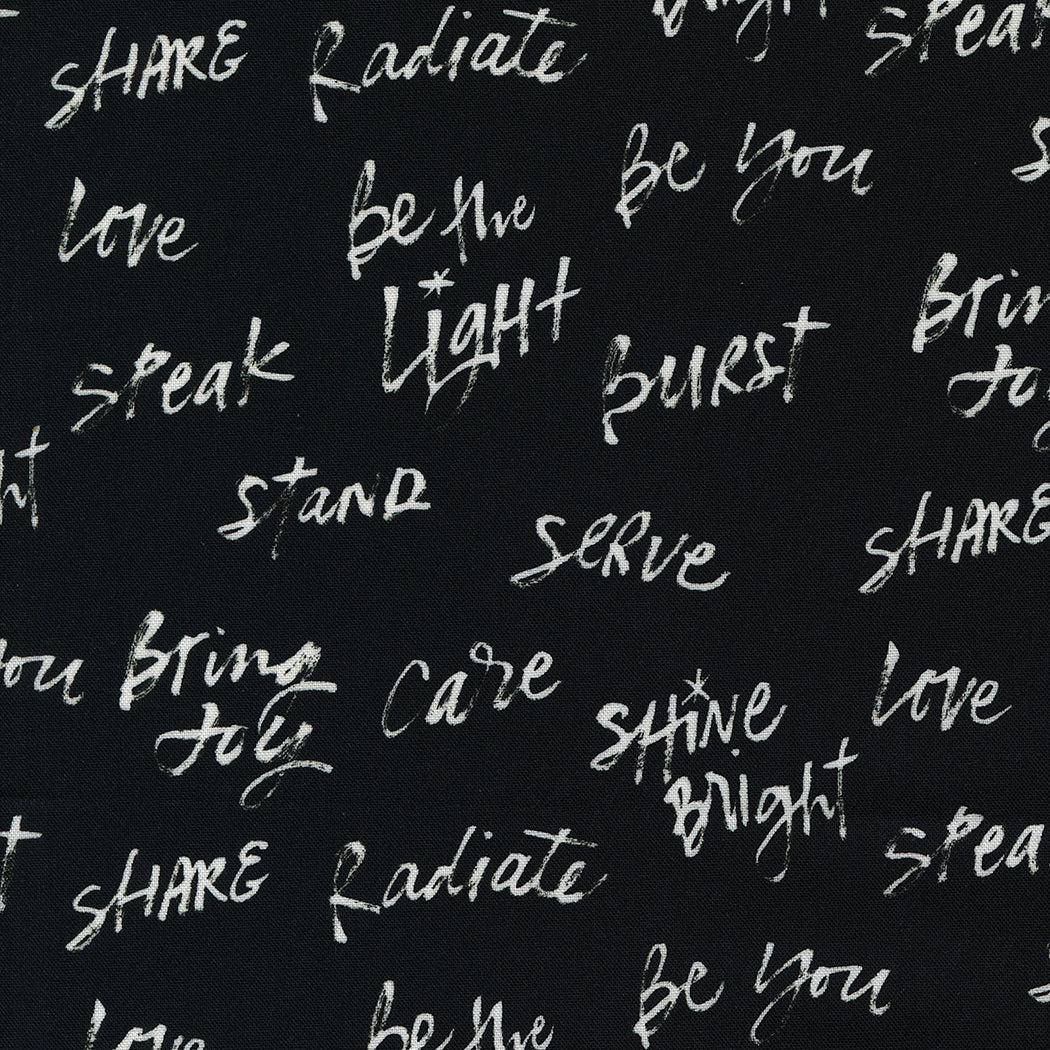 SHARE
Radiate
Bright
Speak
Be You
Love
Be the
Light
Bring
Joy
Speak
BURST
STAND
SERVE
SHARE
You
Bring
Joy
Care
SHINE
Bright
Love
SHARE
Radiate
Speak
Be You
Love
Be the